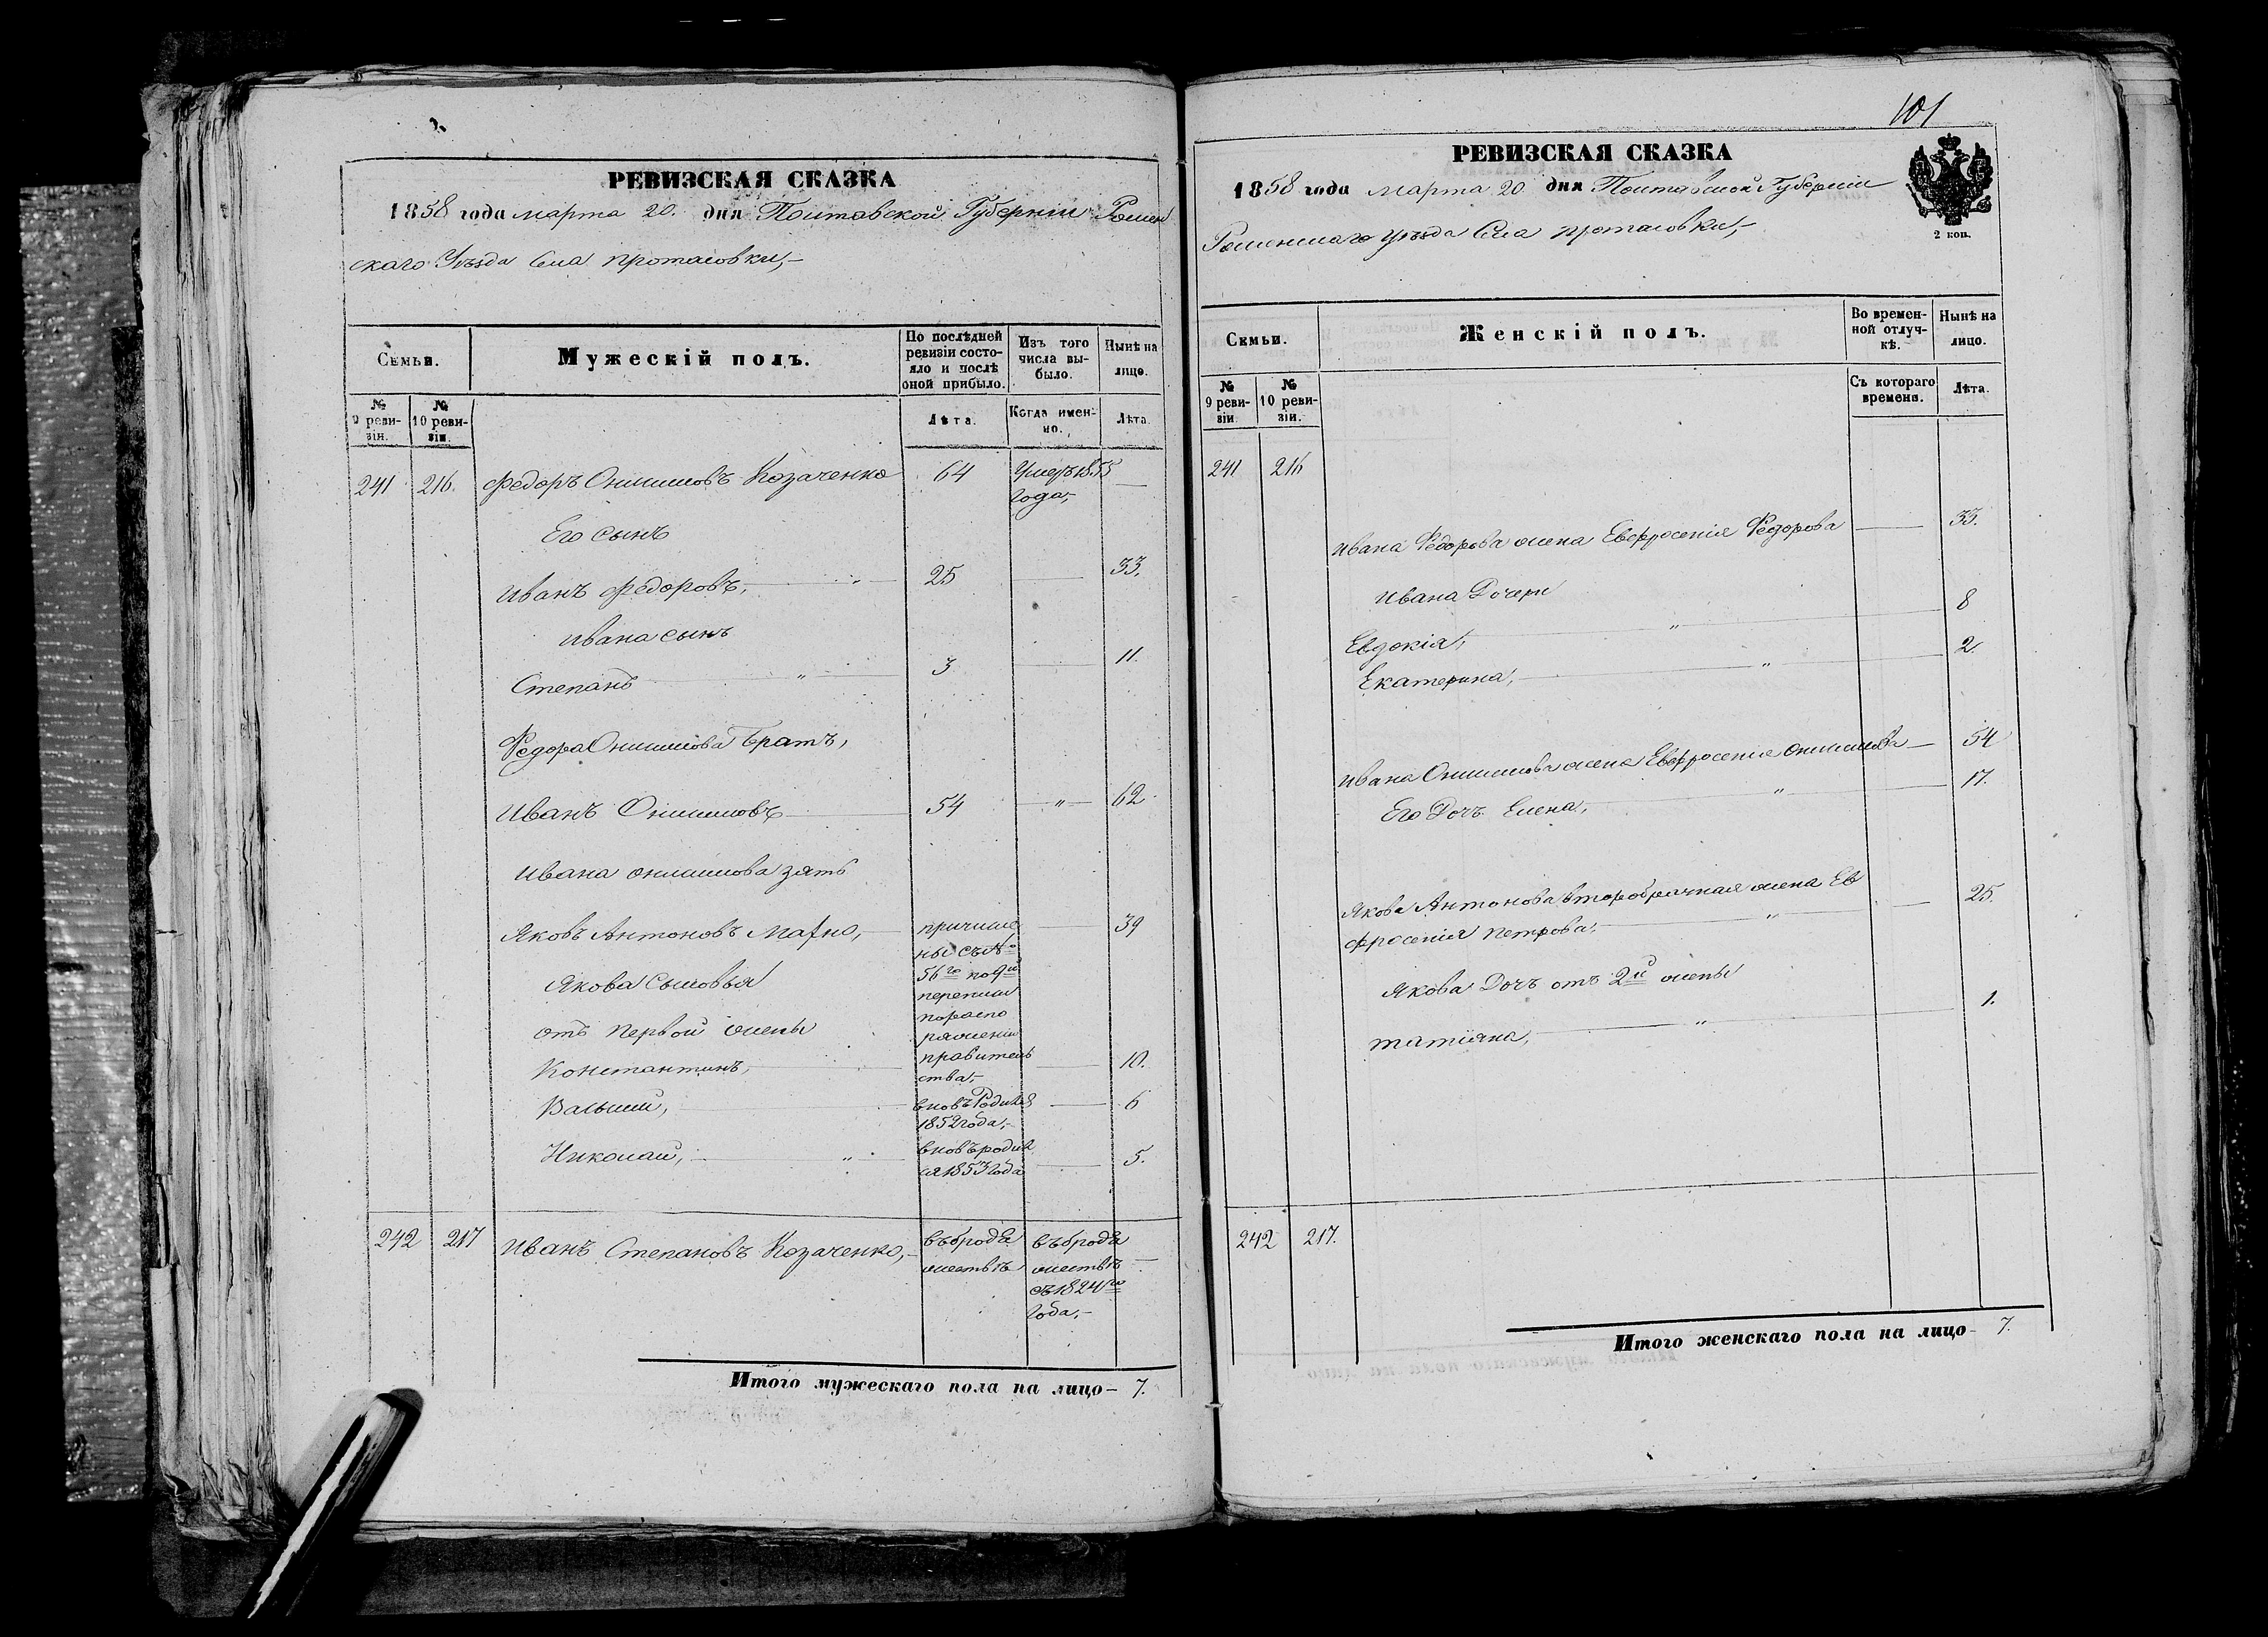 РЕВИЗСКАЯ СКАЗКА
1858 года марта 20. дня Полтавской Губерніи Ромен
скаго Уѣзда Села протасовки,-
Семьи.
Мужескій полъ.
По послѣдней ревизіи состояло и послѣ оной прибыло.
Изъ того числа выбыло.
Нынѣ на лицо.
№ 9 ревизіи.
№ 10 ревизіи.
Лѣта.
Когда именно.
Лѣта.
241 216. Федоръ Онисимовъ Козаченко 64 Умеръ 1855 —
года,-
Его сынъ
Иванъ Федоровъ, " 25 — 33.
Ивана сынъ
Степанъ " 3 — 11.
Федора Онисимова Братъ,
Иванъ Онисимовъ 54 " 62
Ивана онисимова зять
Яковъ Антоновъ Махно, причисле — 39
ны съ №
56го по 9й
Якова Сыновья
переписи
пораспо
отъ первой жены
ряженію
правитель
Константинъ, — 10.
ства,-
Василий, вновь Родился — 6
1852 года,-
Николай, " вновь родил
ся 1853 года — 5.
242 217 Иванъ Степановъ Козаченко,- въ брода въ брода
жествѣ жествѣ —
съ 1824го
года,-
Итого мужескаго пола на лицо — 7.
101
РЕВИЗСКАЯ СКАЗКА
1858 года марта 20 дня Полтавской Губерніи
Роменскаго уѣзда Села протасовки,-
2 коп.
Семьи.
Женскій полъ.
Во временной отлучкѣ.
Нынѣ на лицо.
№ 9 ревизіи
№ 10 ревизіи.
Съ котораго времени.
Лѣта.
241 216
Ивана Федорова жена Евфросенія Федорова — 33.
Ивана Дочери
Евдокія, " 8
Екатерина, " 2
Ивана Онисимова жена Евфросенія Онисимова — 54
Его Дочь Елена, " 17.
Якова Антонова второбрачная жена Ев
фросенія Петрова, " — 25.
Якова Дочь отъ 2й жены
татіяна, " 1.
242 217.
Итого женскаго пола на лицо 7.